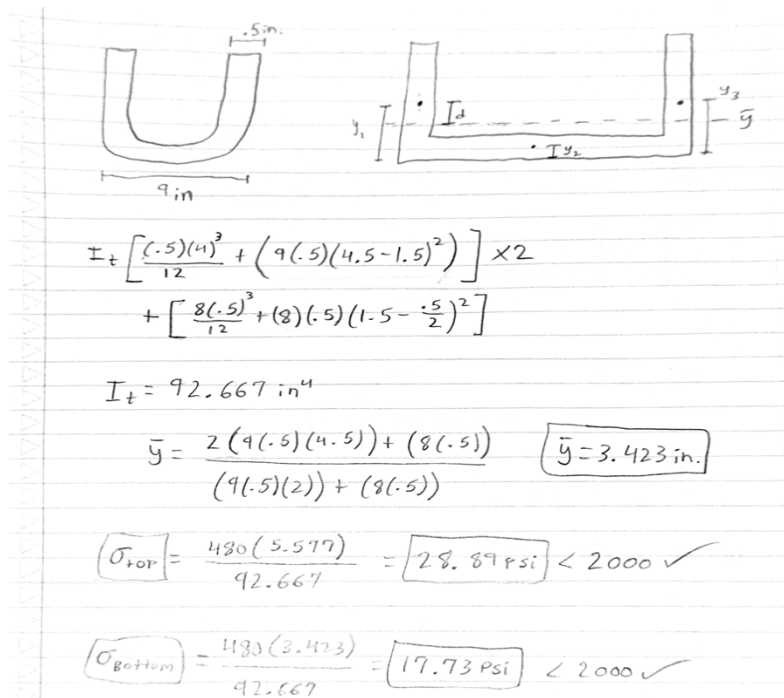 .5in.
9 in
y₁
d
y₂
y₃
ȳ
I_t [ (.5)(4)³/12 + (9(.5)(4.5-1.5)²) ] ×2
+ [ 8(.5)³/12 + (8)(.5)(1.5 - .5/2)² ]
I_t = 92.667 in⁴
ȳ = 2(9(.5)(4.5)) + (8(.5)) / (9(.5)(2)) + (8(.5))
ȳ = 3.423 in.
σ_TOP = 480(5.577)/92.667 = 28.89 psi < 2000 ✓
σ_Bottom = 480(3.423)/92.667 = 17.73 psi < 2000 ✓